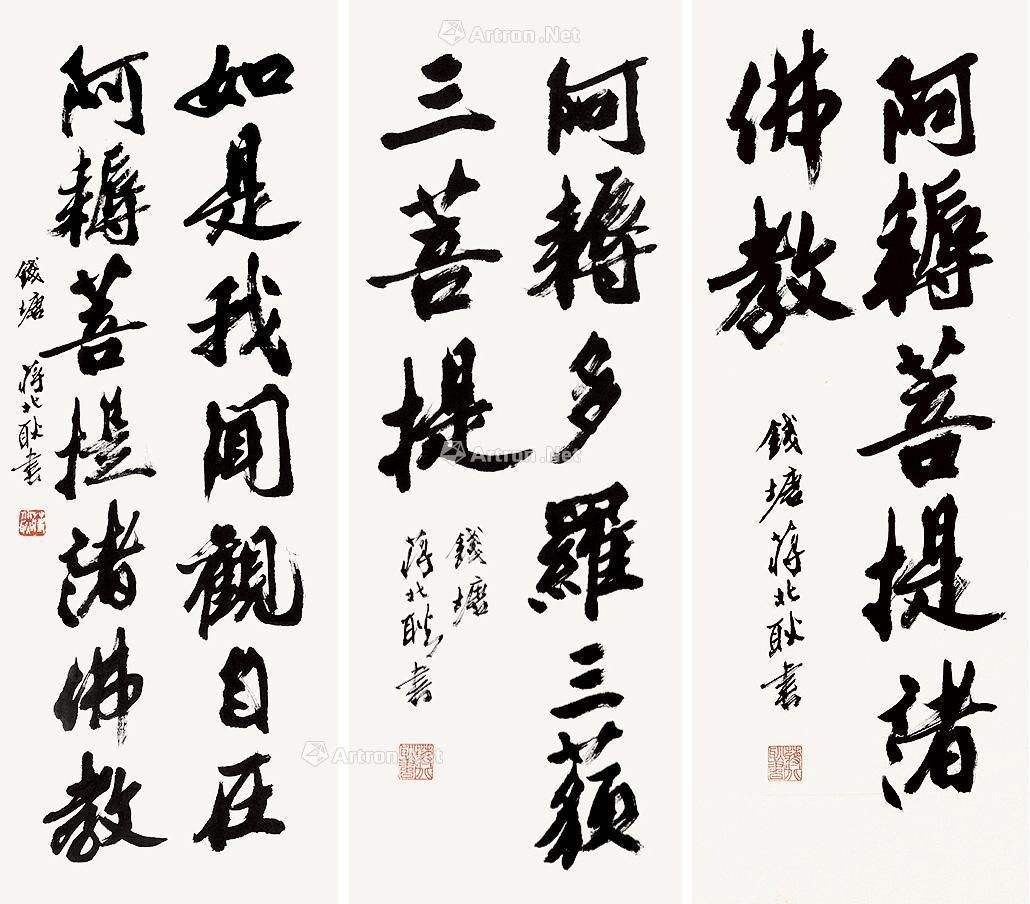 阿耨菩提諸
佛教
錢塘蔣北耿書
阿耨多羅三藐
三菩提
錢塘
蔣北耿書
如是我聞觀自在
阿耨菩提諸佛教
錢塘 蔣北耿書
Artron.Net
Artron.Net
Artron.Net